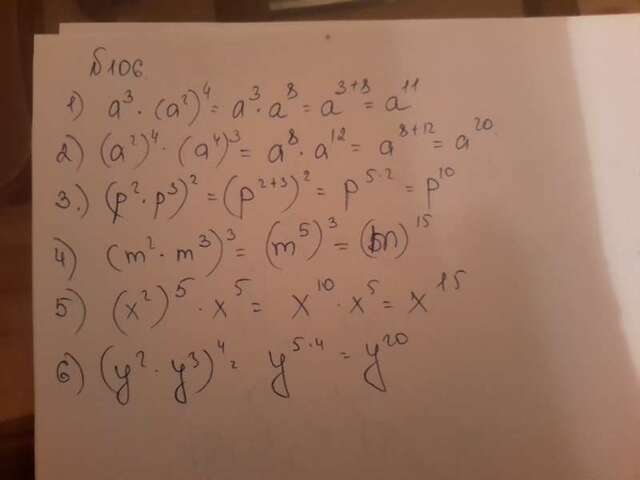 №106.
1) a³ · (a²)⁴ = a³ · a⁸ = a³⁺⁸ = a¹¹
2) (a²)⁴ · (a⁴)³ = a⁸ · a¹² = a⁸⁺¹² = a²⁰
3.) (p² · p³)² = (p²⁺³)² = p⁵·² = p¹⁰
4) (m² · m³)³ = (m⁵)³ = (m)¹⁵
5) (x²)⁵ · x⁵ = x¹⁰ · x⁵ = x¹⁵
6) (y² · y³)⁴ = y⁵·⁴ = y²⁰